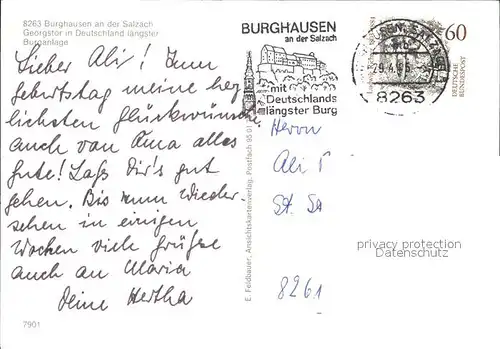 8263 Burghausen an der Salzach
Georgstor in Deutschland längster
Burganlage
Lieber Ali! Zum
Geburtstag meine herz
lichsten Glückwünsche,
auch von Oma alles
Gute! Laß Dir's gut
gehen. Bis zum Wieder
sehen in einigen
Wochen viele Grüße
auch an Maria
Deine Hertha
7901
E. Feldbauer, Ansichtskartenverlag, Postfach 95 01
BURGHAUSEN
an der Salzach
mit
Deutschlands
längster Burg
8263
60
DEUTSCHE
BUNDESPOST
Herrn
Ali
8261
privacy protection
Datenschutz